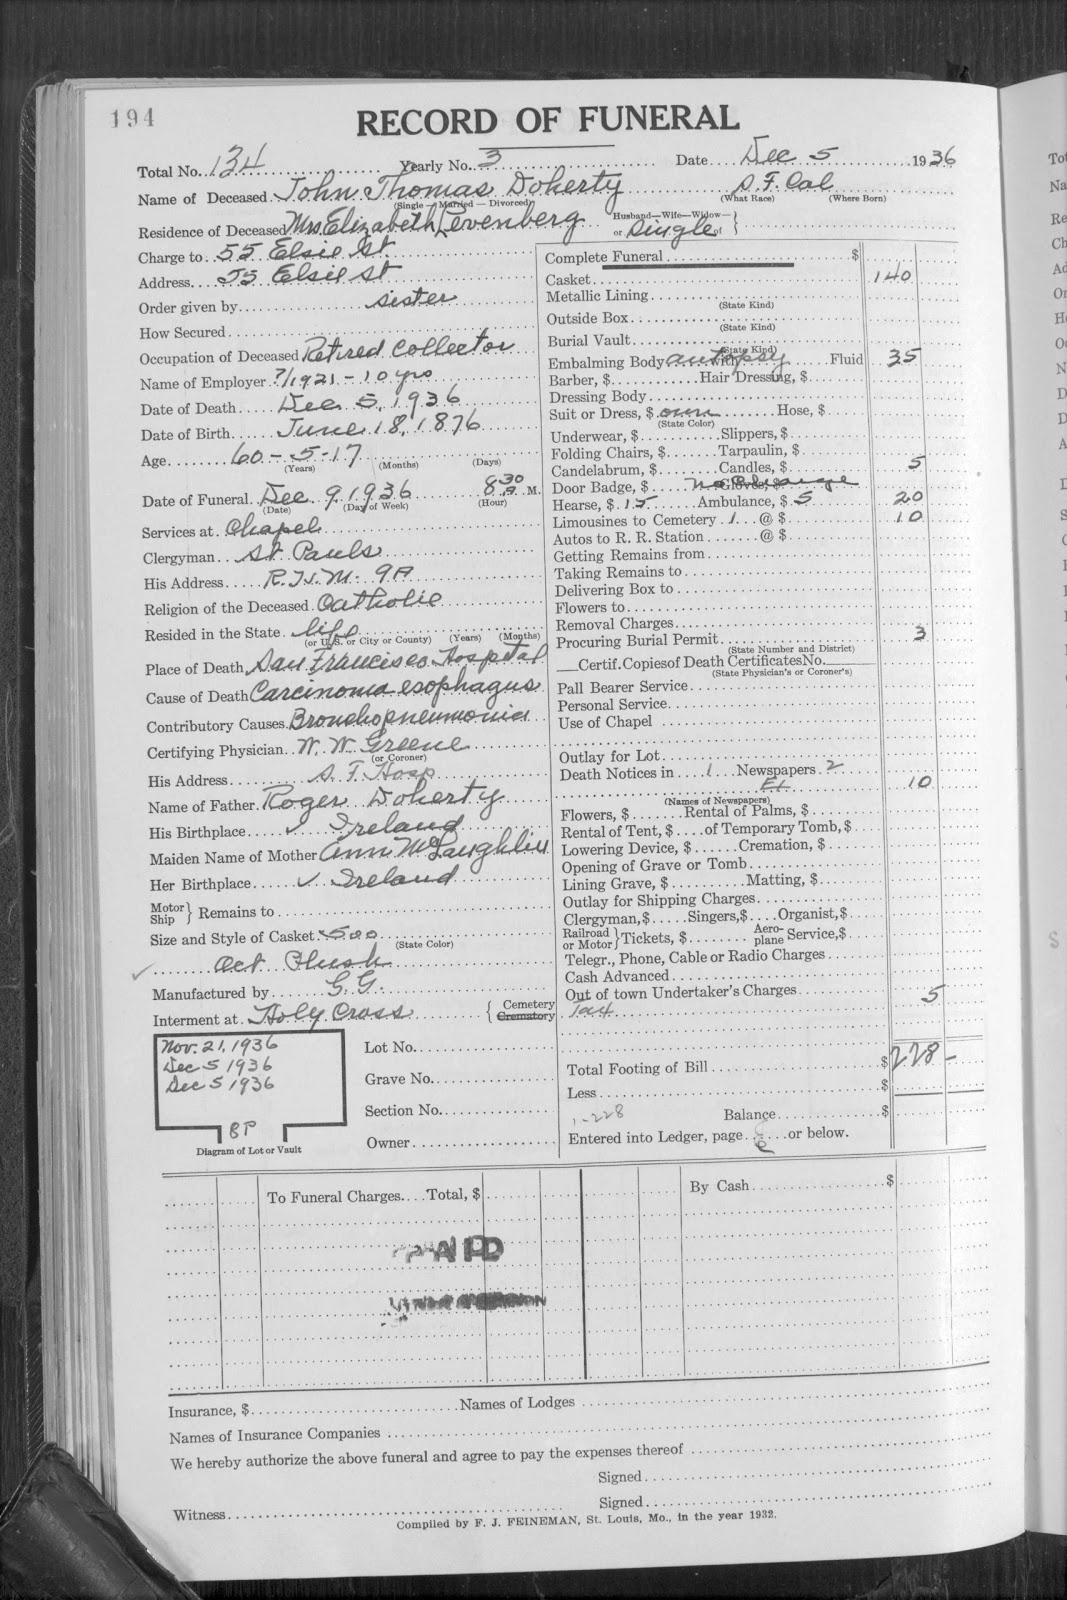 194
RECORD OF FUNERAL
Total No. 134 Yearly No. 3 Date Dec 5 1936
Name of Deceased John Thomas Doherty S.F. Cal
(Single — Married — Divorced) (What Race) (Where Born)
Residence of Deceased Mrs Elizabeth Levenberg Husband—Wife—Widow— or Single of
Charge to 55 Elsie St.
Address 55 Elsie St
Order given by sister
How Secured
Occupation of Deceased Retired Collector
Name of Employer ?/1921 - 10 yrs
Date of Death Dec 5, 1936
Date of Birth June 18, 1876
Age 60-5-17
(Years) (Months) (Days)
Date of Funeral Dec 9 1936 8 30 A. M.
(Date) (Day of Week) (Hour)
Services at Chapel
Clergyman St Pauls
His Address R.H.M. 9A
Religion of the Deceased Catholic
Resided in the State life
(or U. S. or City or County) (Years) (Months)
Place of Death San Francisco Hospital
Cause of Death Carcinoma esophagus
Contributory Causes Bronchopneumonia
Certifying Physician W. W. Greene
(or Coroner)
His Address S. F. Hosp
Name of Father Roger Doherty
His Birthplace ✓ Ireland
Maiden Name of Mother Ann McLaughlin
Her Birthplace ✓ Ireland
Motor Ship } Remains to
Size and Style of Casket 500
(State Color)
✓ Oct Plush
Manufactured by G. G.
Interment at Holy Cross { Cemetery Crematory
Nov. 21, 1936
Dec 5 1936
Dec 5 1936
BP
Diagram of Lot or Vault
Lot No.
Grave No.
Section No.
Owner
Complete Funeral $
Casket 140
Metallic Lining
(State Kind)
Outside Box
(State Kind)
Burial Vault
(State Kind)
Embalming Body autopsy with Fluid 35
Barber, $ Hair Dressing, $
Dressing Body
Suit or Dress, $ own Hose, $
(State Color)
Underwear, $ Slippers, $
Folding Chairs, $ Tarpaulin, $
Candelabrum, $ Candles, $ 5
Door Badge, $ Gloves, $ no charge
Hearse, $ 15 Ambulance, $ 5 20
Limousines to Cemetery 1 @ $ 10
Autos to R. R. Station @ $
Getting Remains from
Taking Remains to
Delivering Box to
Flowers to
Removal Charges
Procuring Burial Permit 3
(State Number and District)
Certif. Copies of Death Certificates No.
(State Physician's or Coroner's)
Pall Bearer Service
Personal Service
Use of Chapel
Outlay for Lot
Death Notices in 1 Newspapers 2
Ex 10
(Names of Newspapers)
Flowers, $ Rental of Palms, $
Rental of Tent, $ of Temporary Tomb, $
Lowering Device, $ Cremation, $
Opening of Grave or Tomb
Lining Grave, $ Matting, $
Outlay for Shipping Charges
Clergyman, $ Singers, $ Organist, $
Railroad or Motor } Tickets, $ Aero-plane Service, $
Telegr., Phone, Cable or Radio Charges
Cash Advanced
Out of town Undertaker's Charges 5
Tax
Total Footing of Bill $ 228 -
Less $
1-228 Balance $
Entered into Ledger, page or below.
To Funeral Charges Total, $ By Cash $
PAID
Insurance, $ Names of Lodges
Names of Insurance Companies
We hereby authorize the above funeral and agree to pay the expenses thereof
Signed
Witness Signed
Compiled by F. J. FEINEMAN, St. Louis, Mo., in the year 1932.